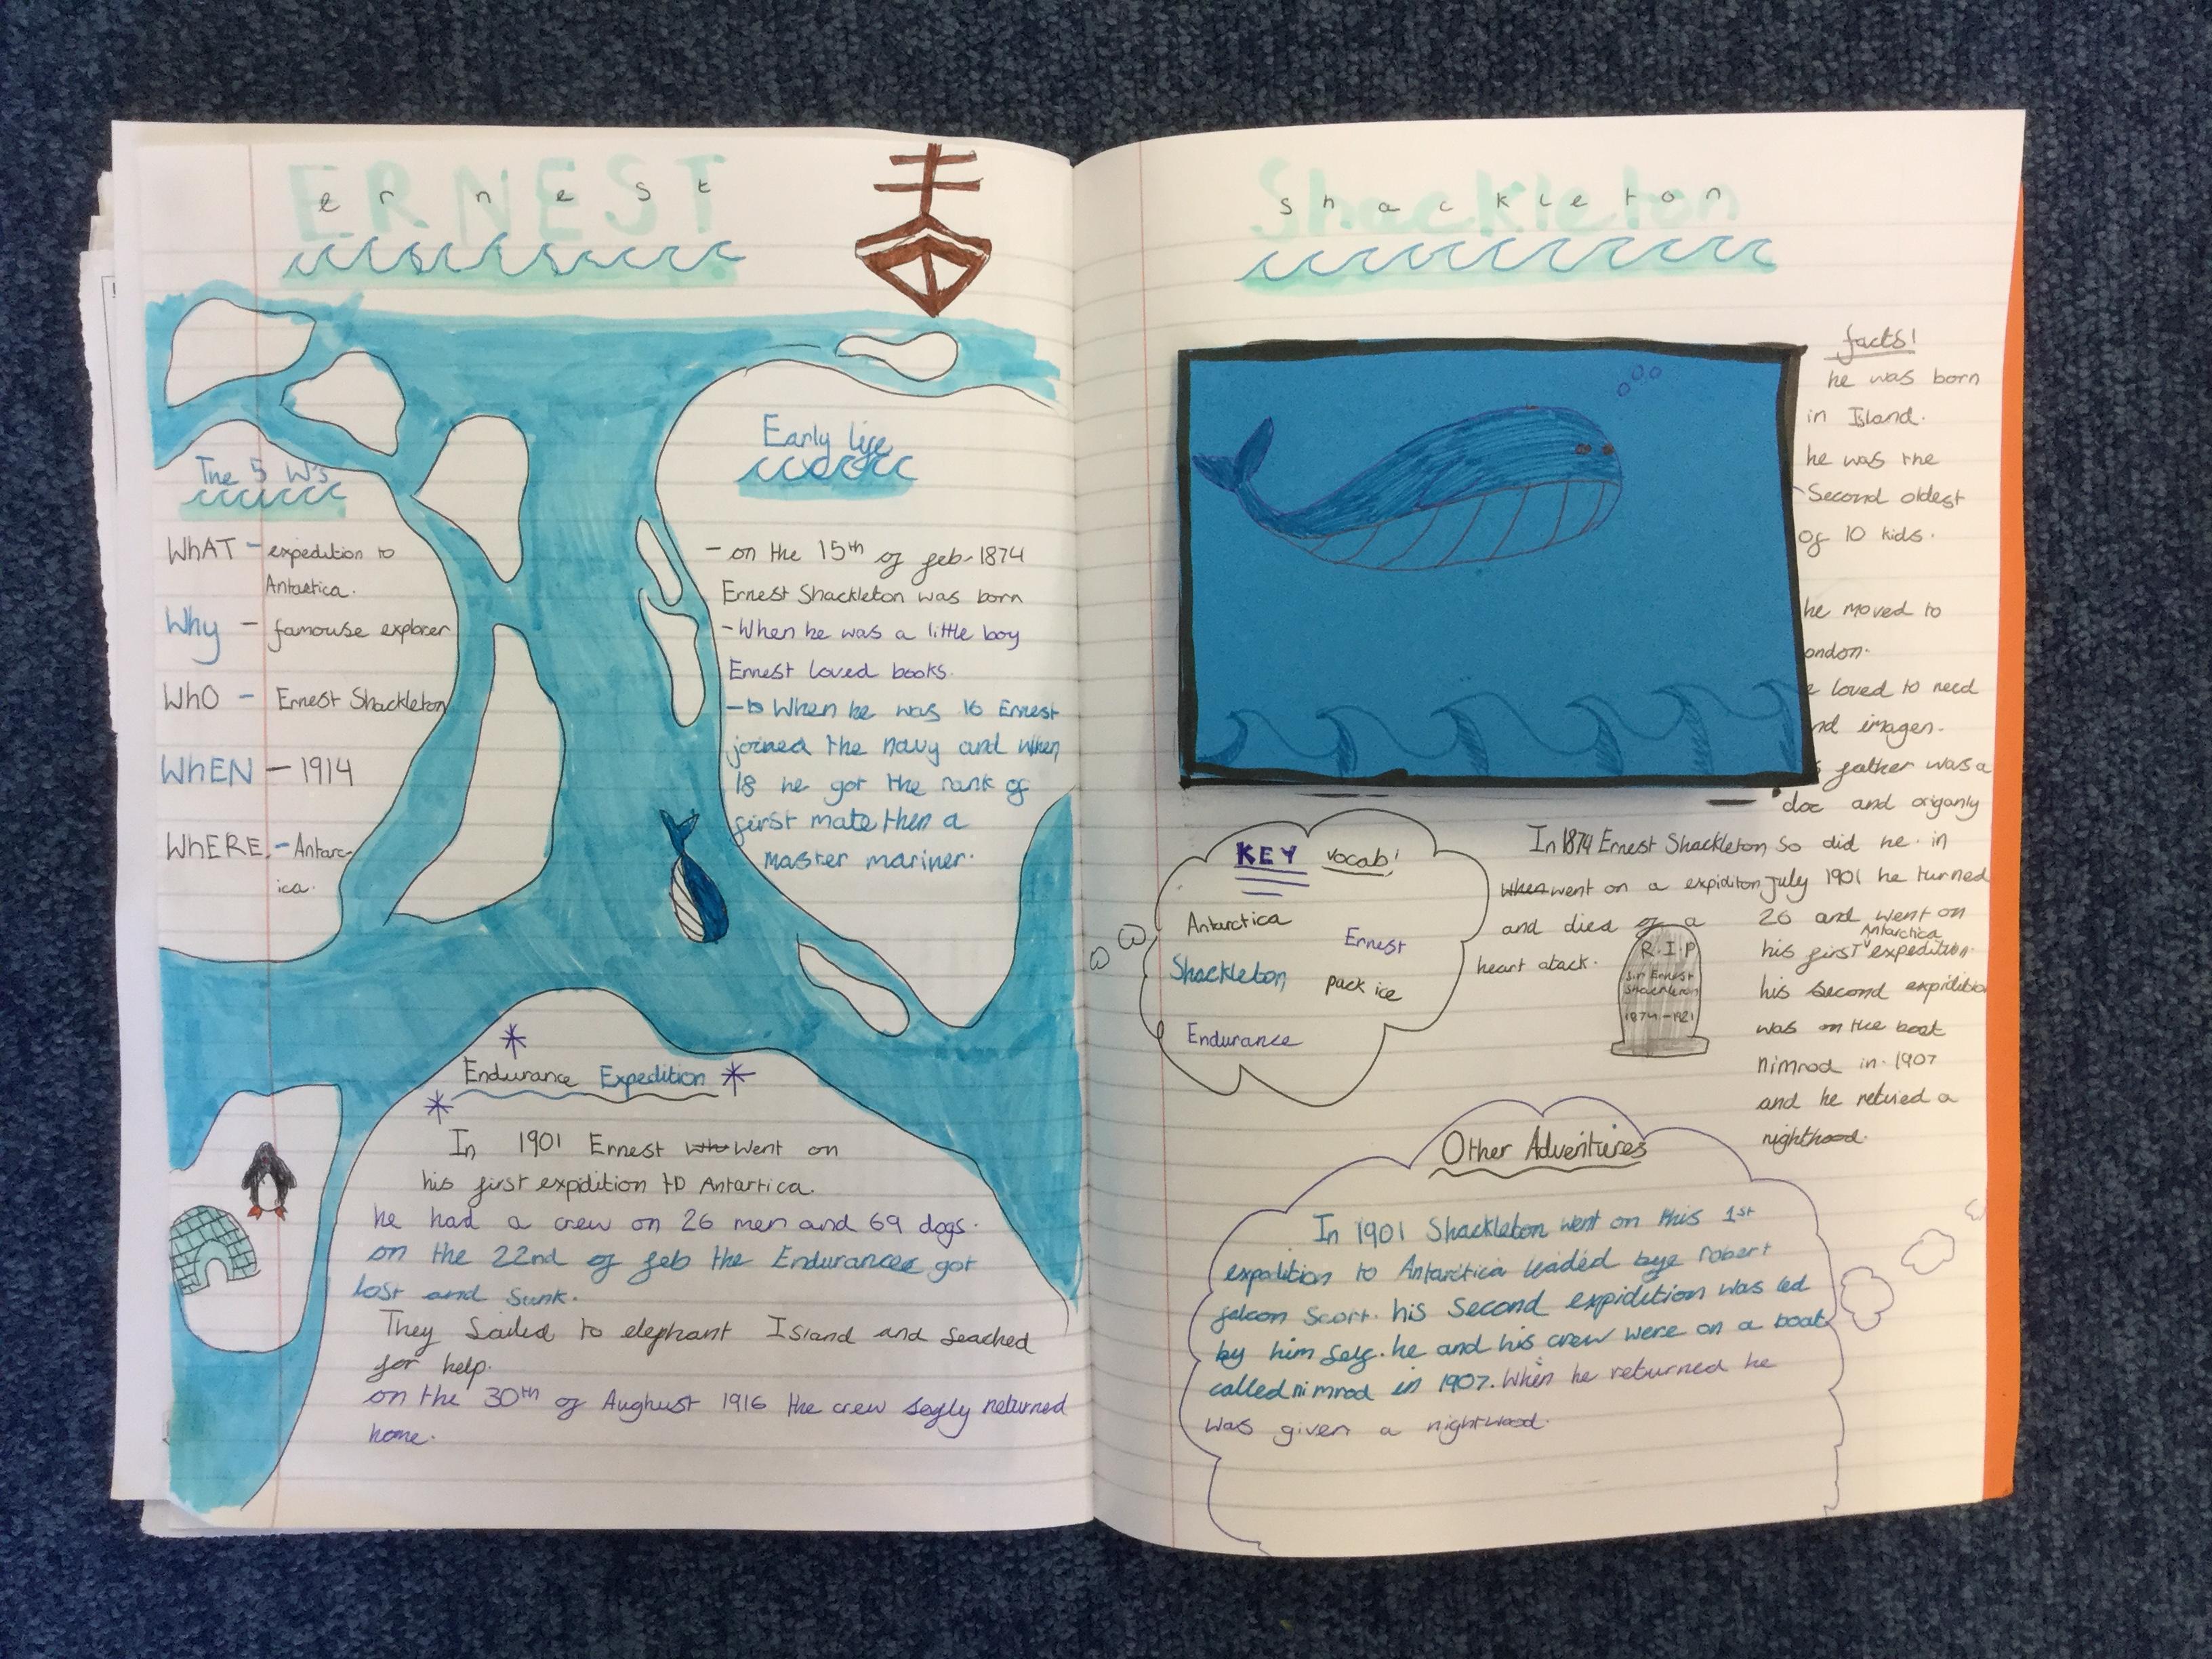 ERNEST
ernest
The 5 W's
WhAT - expedition to
Antartica.
Why - famouse explorer
WhO - Ernest Shackleton
WhEN - 1914
WhERE - Antarc-
ica.
Early life
- on the 15th of feb-1874
Ernest Shackleton was born
- When he was a little boy
Ernest loved books.
- When he was 16 Ernest
joined the navy and when
18 he got the rank of
first mate then a
master mariner.
Endurance Expedition
In 1901 Ernest who went on
his first expidition to Antartica.
he had a crew on 26 men and 69 dogs.
on the 22nd of feb the Endurance got
lost and sunk.
They Sailed to elephant Island and seached
for help.
on the 30th of Aughust 1916 the crew safly returned
home.
Shackleton
shackleton
facts!
he was born
in Island.
he was the
Second oldest
of 10 kids.
he moved to
ondon.
e loved to reed
nd imagen.
s father was a
doc and origanly
so did he. in
July 1901 he turned
26 and went on
Antarctica
his first expedition.
his second expidition
was on the boat
nimrod in 1907
and he retured a
nighthood.
KEY vocab!
Antarctica
Ernest
Shackleton
pack ice
Endurance
In 1874 Ernest Shackleton
when went on a expiditon
and died of a
heart atack.
R.I.P
Sir Ernest
Shackleton
1874-1921
Other Adventures
In 1901 Shackleton went on this 1st
expedition to Antarctica leaded bye robert
falcon Scott. his Second expidition was led
by him self. he and his crew were on a boat
called nimrod in 1907. When he returned he
was given a nightwood.